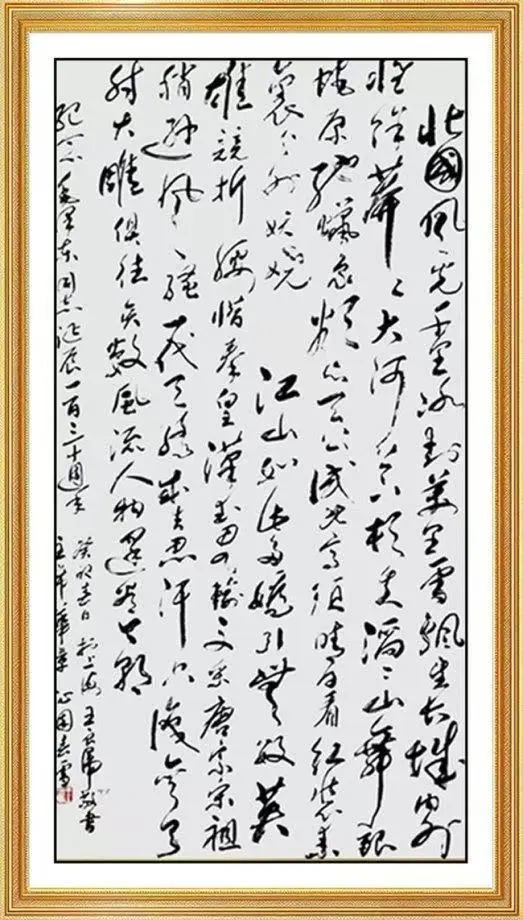 北國风光千里冰封萬里雪飘望长城内外
惟馀莽々大河上下顿失滔々山舞银
蛇原驰蜡象欲与天公试比高须晴日看红装素
裹分外妖娆 江山如此多嬌引無数英
雄競折腰惜秦皇漢武略输文采唐宗宋祖
稍逊风骚一代天骄成吉思汗只识弯弓
射大雕俱往矣数風流人物還看今朝
纪念毛泽东同志诞辰一百三十週年
癸卯春日於上海王敬书
主席華章沁园春雪